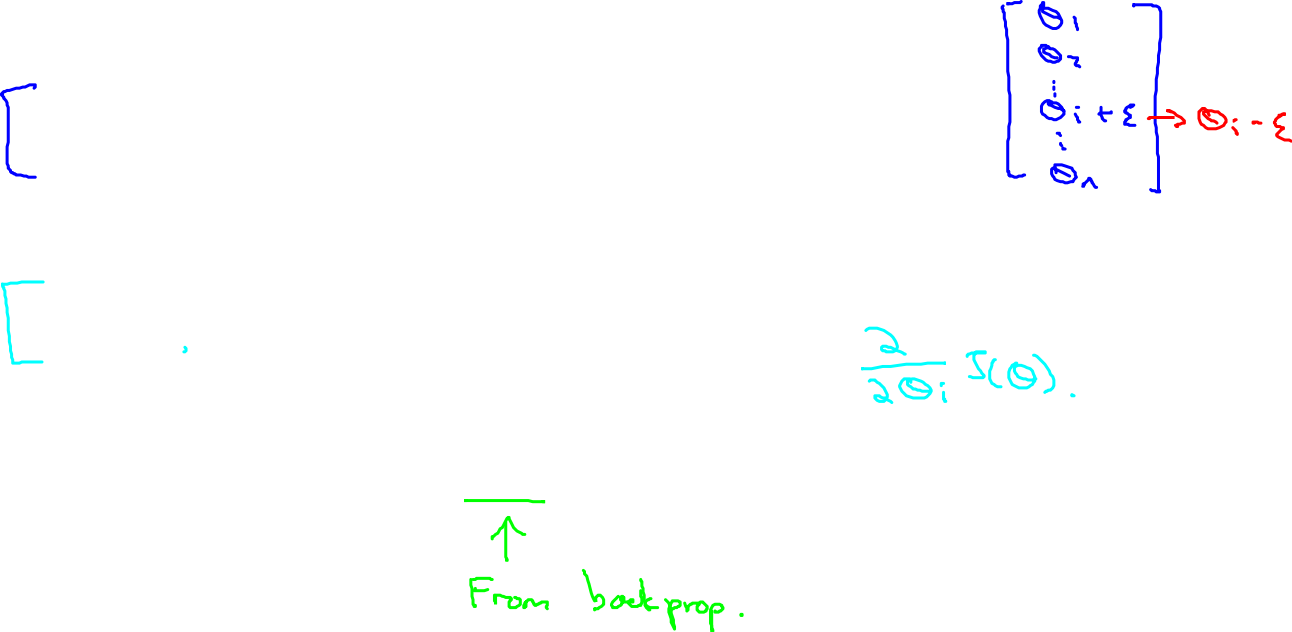 θ₁
θ₂
⋮
θᵢ + ε → θᵢ - ε
⋮
θₙ
∂/∂θᵢ J(θ).
From backprop.